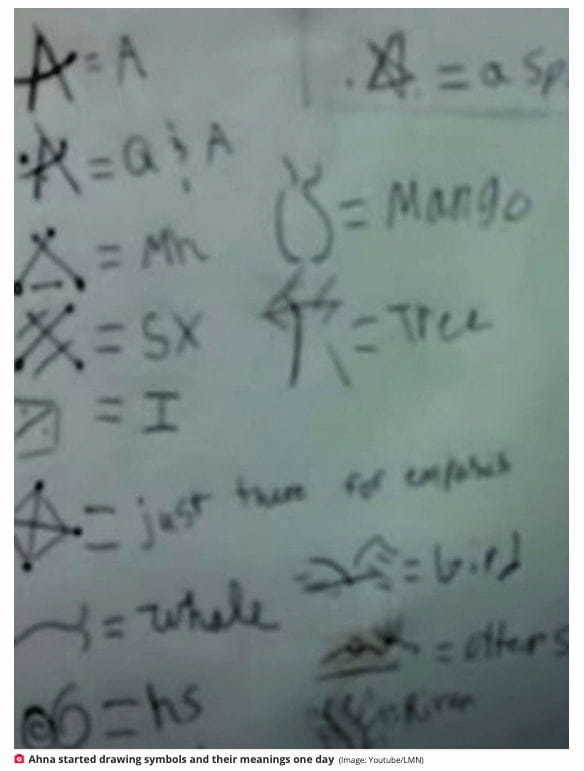 = A
= a & A
= Mn
= SX
= I
= just there for emphasis
= whale
= hs
= a Sp
= Mango
= Tree
= bird
= otters
Ahna started drawing symbols and their meanings one day (Image: Youtube/LMN)